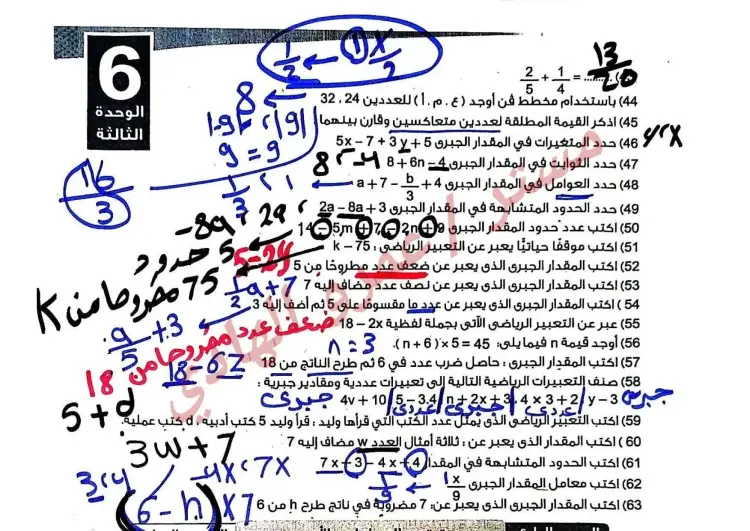 6
الوحدة
الثالثة
1/2 ← ① x/2
2/5 + 1/4 = ........ 13/20
44) باستخدام مخطط ڤن أوجد (ع . م . أ) للعددين 24 ، 32
8
45) اذكر القيمة المطلقة لعددين متعاكسين وقارن بينهما
|-9| ، |9|
9 = 9
46) حدد المتغيرات في المقدار الجبرى 5x – 7 + 3y + 5
y ، x
47) حدد الثوابت في المقدار الجبرى 8 + 6n – 4
8 ، -4
48) حدد العوامل في المقدار الجبرى a + 7 – b/3 + 4
1/3 ، 1
16/3
49) حدد الحدود المتشابهة في المقدار الجبرى 2a – 8a + 3
-8a ، 2a
50) اكتب عدد حدود المقدار الجبرى 14 – 5m + 7 – 2n + 9
5 حدود
51) اكتب موقفًا حياتيًا يعبر عن التعبير الرياضى : k – 75
75 مطروحا من K
52) اكتب المقدار الجبرى الذى يعبر عن ضعف عدد مطروحًا من 5
5-2y
53) اكتب المقدار الجبرى الذى يعبر عن نصف عدد مضاف إليه 7
1/2 a + 7
54) اكتب المقدار الجبرى الذى يعبر عن عدد ما مقسومًا على 5 ثم أضف إليه 3
a/5 + 3
55) عبر عن التعبير الرياضى الآتى بجملة لفظية 18 – 2x
ضعف عدد مطروحا من 18
56) أوجد قيمة n فيما يلى: 45 = 5 × (n + 6)
n = 3
57) اكتب المقدار الجبرى : حاصل ضرب عدد في 6 ثم طرح الناتج من 18
18 - 6z
58) صنف التعبيرات الرياضية التالية إلى تعبيرات عددية ومقادير جبرية :
4y + 10 , 5 – 3.4 , n + 2x + 3 , 4 × 3 + 2 , y – 3
جبرى / عددى / جبرى / عددى / جبرى
59) اكتب التعبير الرياضى الذى يمثل عدد الكتب التي قرأها وليد : قرأ وليد 5 كتب أدبية ، d كتب عملية.
5 + d
60) اكتب المقدار الجبرى الذى يعبر عن : ثلاثة أمثال العدد w مضاف إليه 7
3w + 7
61) اكتب الحدود المتشابهة في المقدار 7x + 3 – 4x + 4
-4x ، 7x
3 ، 4
62) اكتب معامل المقدار الجبرى 1x/9
1/9
63) اكتب المقدار الجبرى الذى يعبر عن: 7 مضروبة في ناتج طرح h من 6
(6 - h) x 7